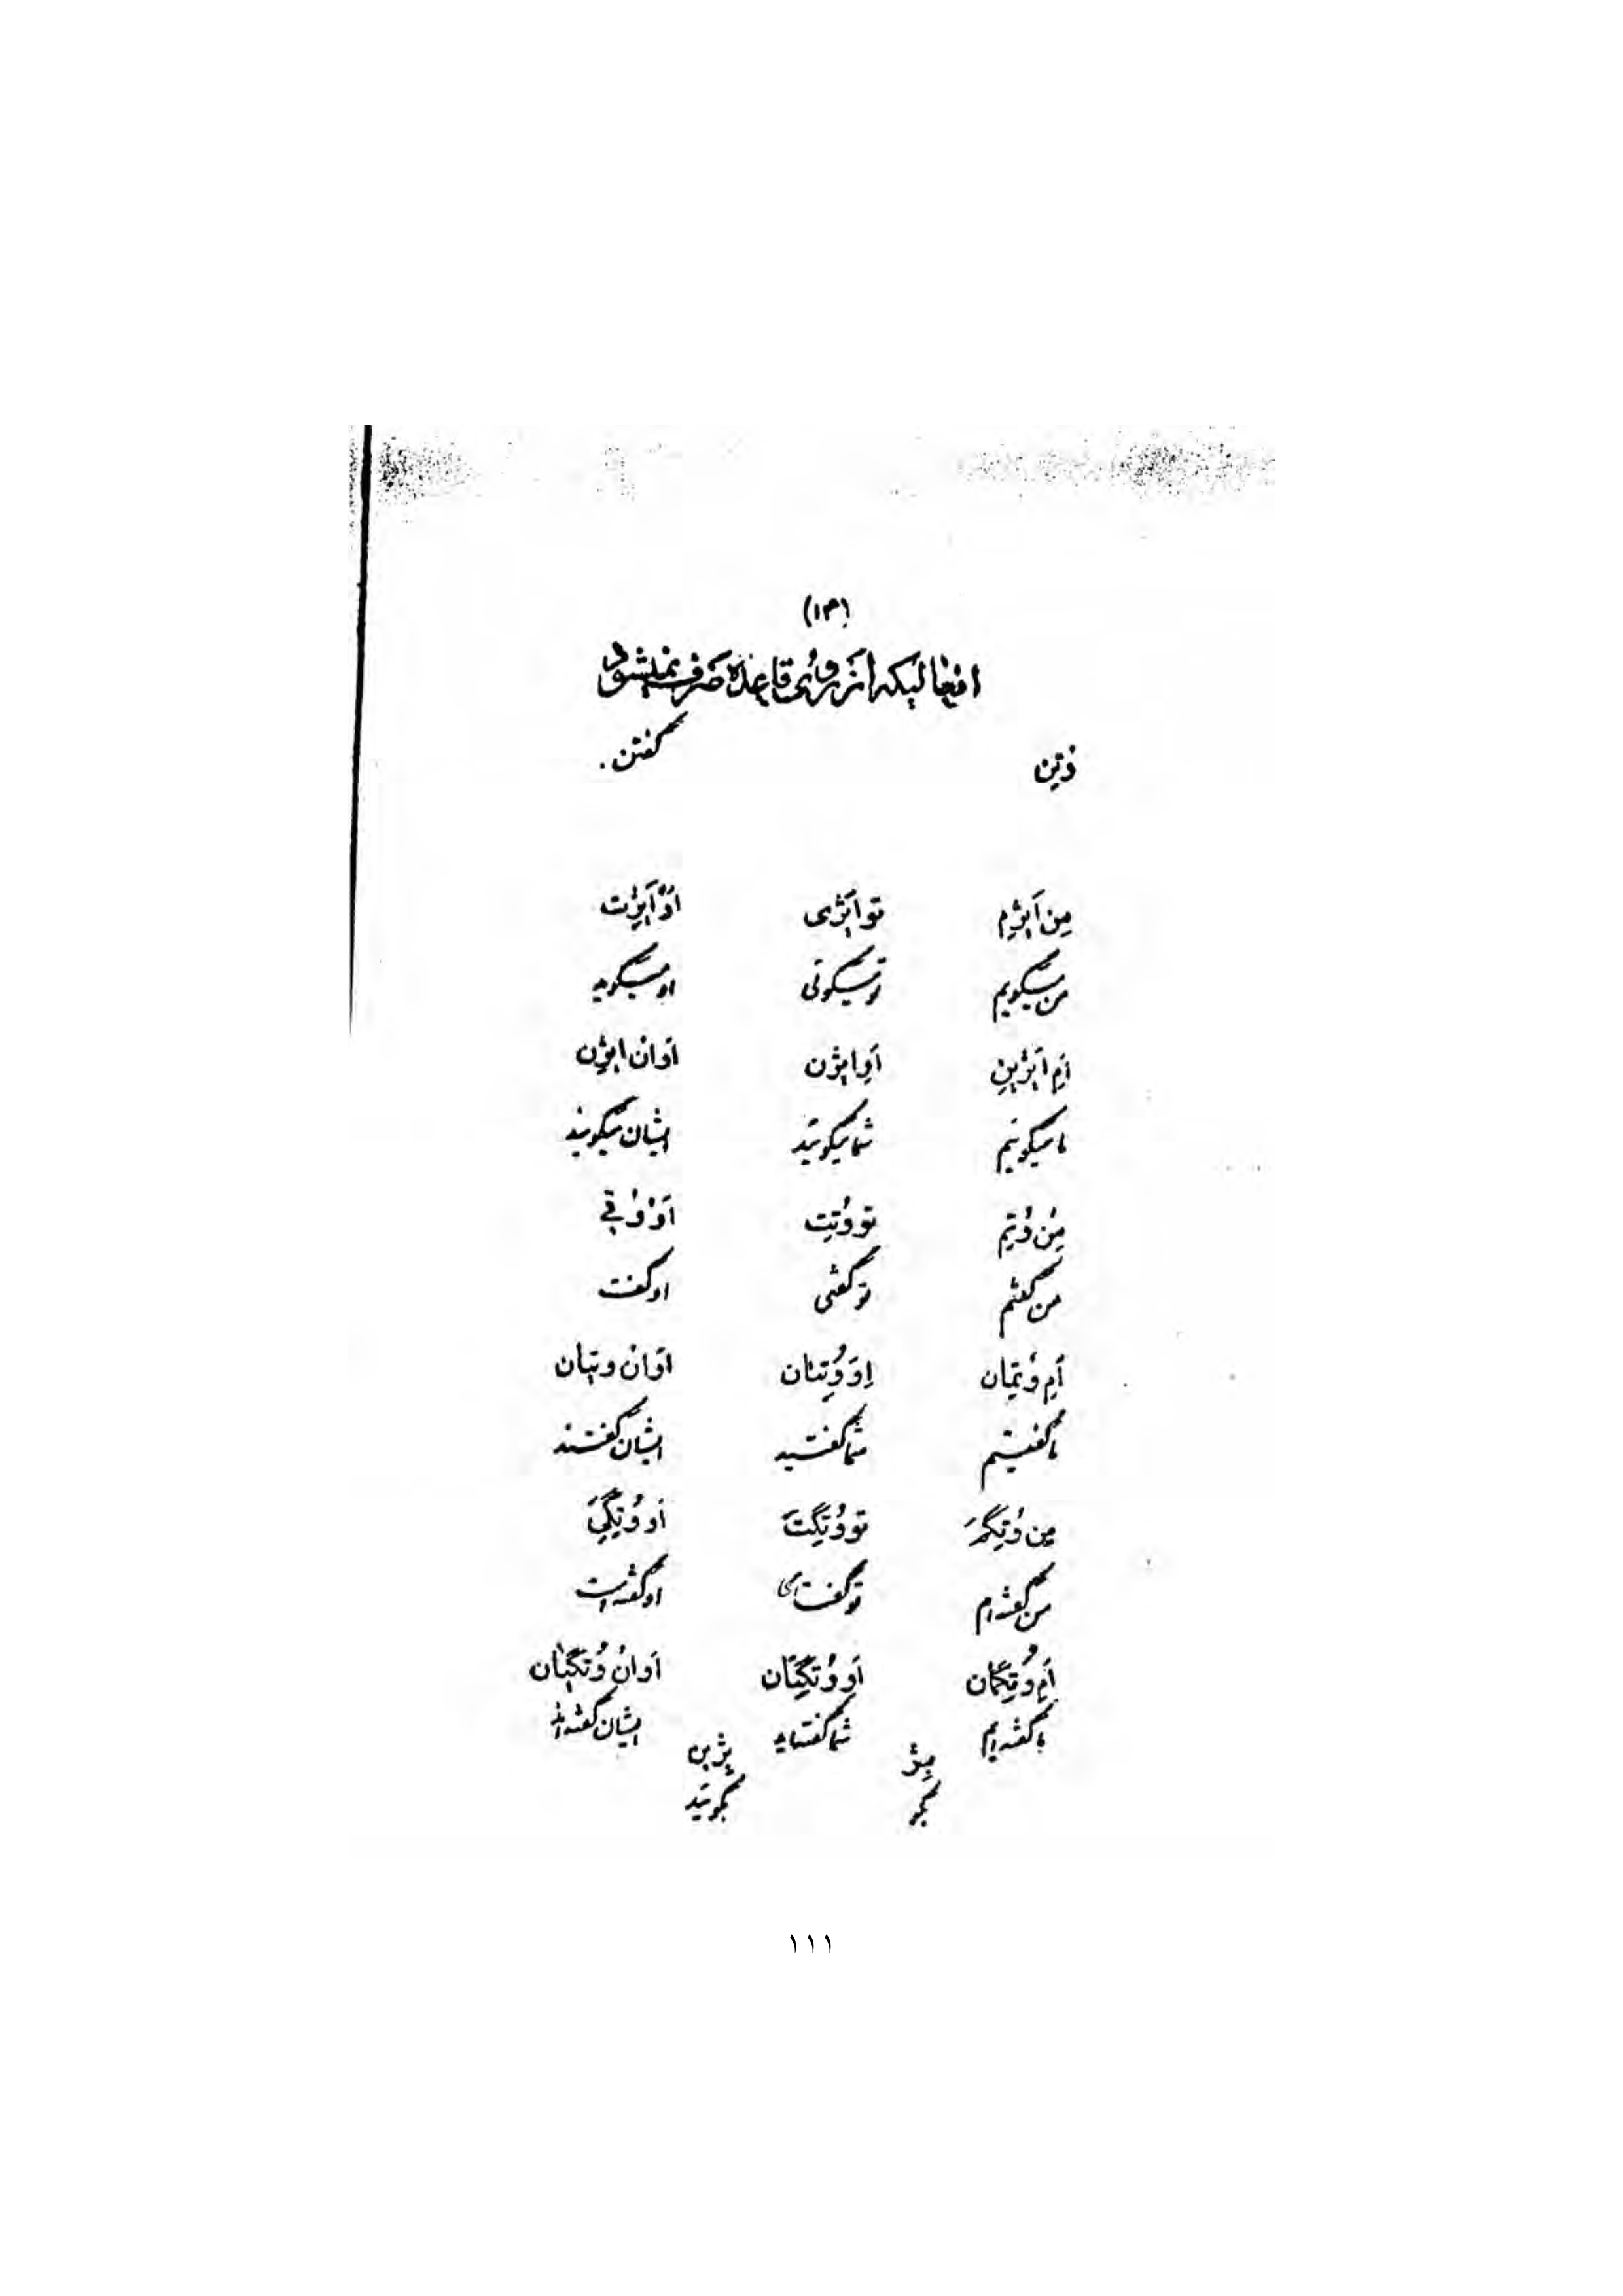 (۱۳)
افعالیکه از روی قاعده صرف نمیشود
وُتِن گفتن.
مِن اَبِژِم تو ابَژی اوُ اَبِژِت
من میگویم تو میگوئی او میگوید
اَمِ اَبَژین اَوِ ابِژن اَوان ابِژِن
ما میگوئیم شما میگوئید ایشان میگویند
مِن وُتِم تو وُتِت اَوْ وُتی
من گفتم تو گفتی او گفت
اَمِ وُتِمان اِوَ وُتِتان اَوان وتیان
ما گفتیم شما گفتید ایشان گفتند
مِن وُتِگمَ تو وُتِگتَ اَو وُتِگیَ
من گفته‌ام تو گفته‌ای او گفته است
اَمِ وُتِگمان اَوِ وُتِگتان اَوان وُتِگیان
ما گفته‌ایم شما گفته‌اید ایشان گفته‌اند
بِژ بِژین
بگو بگوئید
۱۱۱